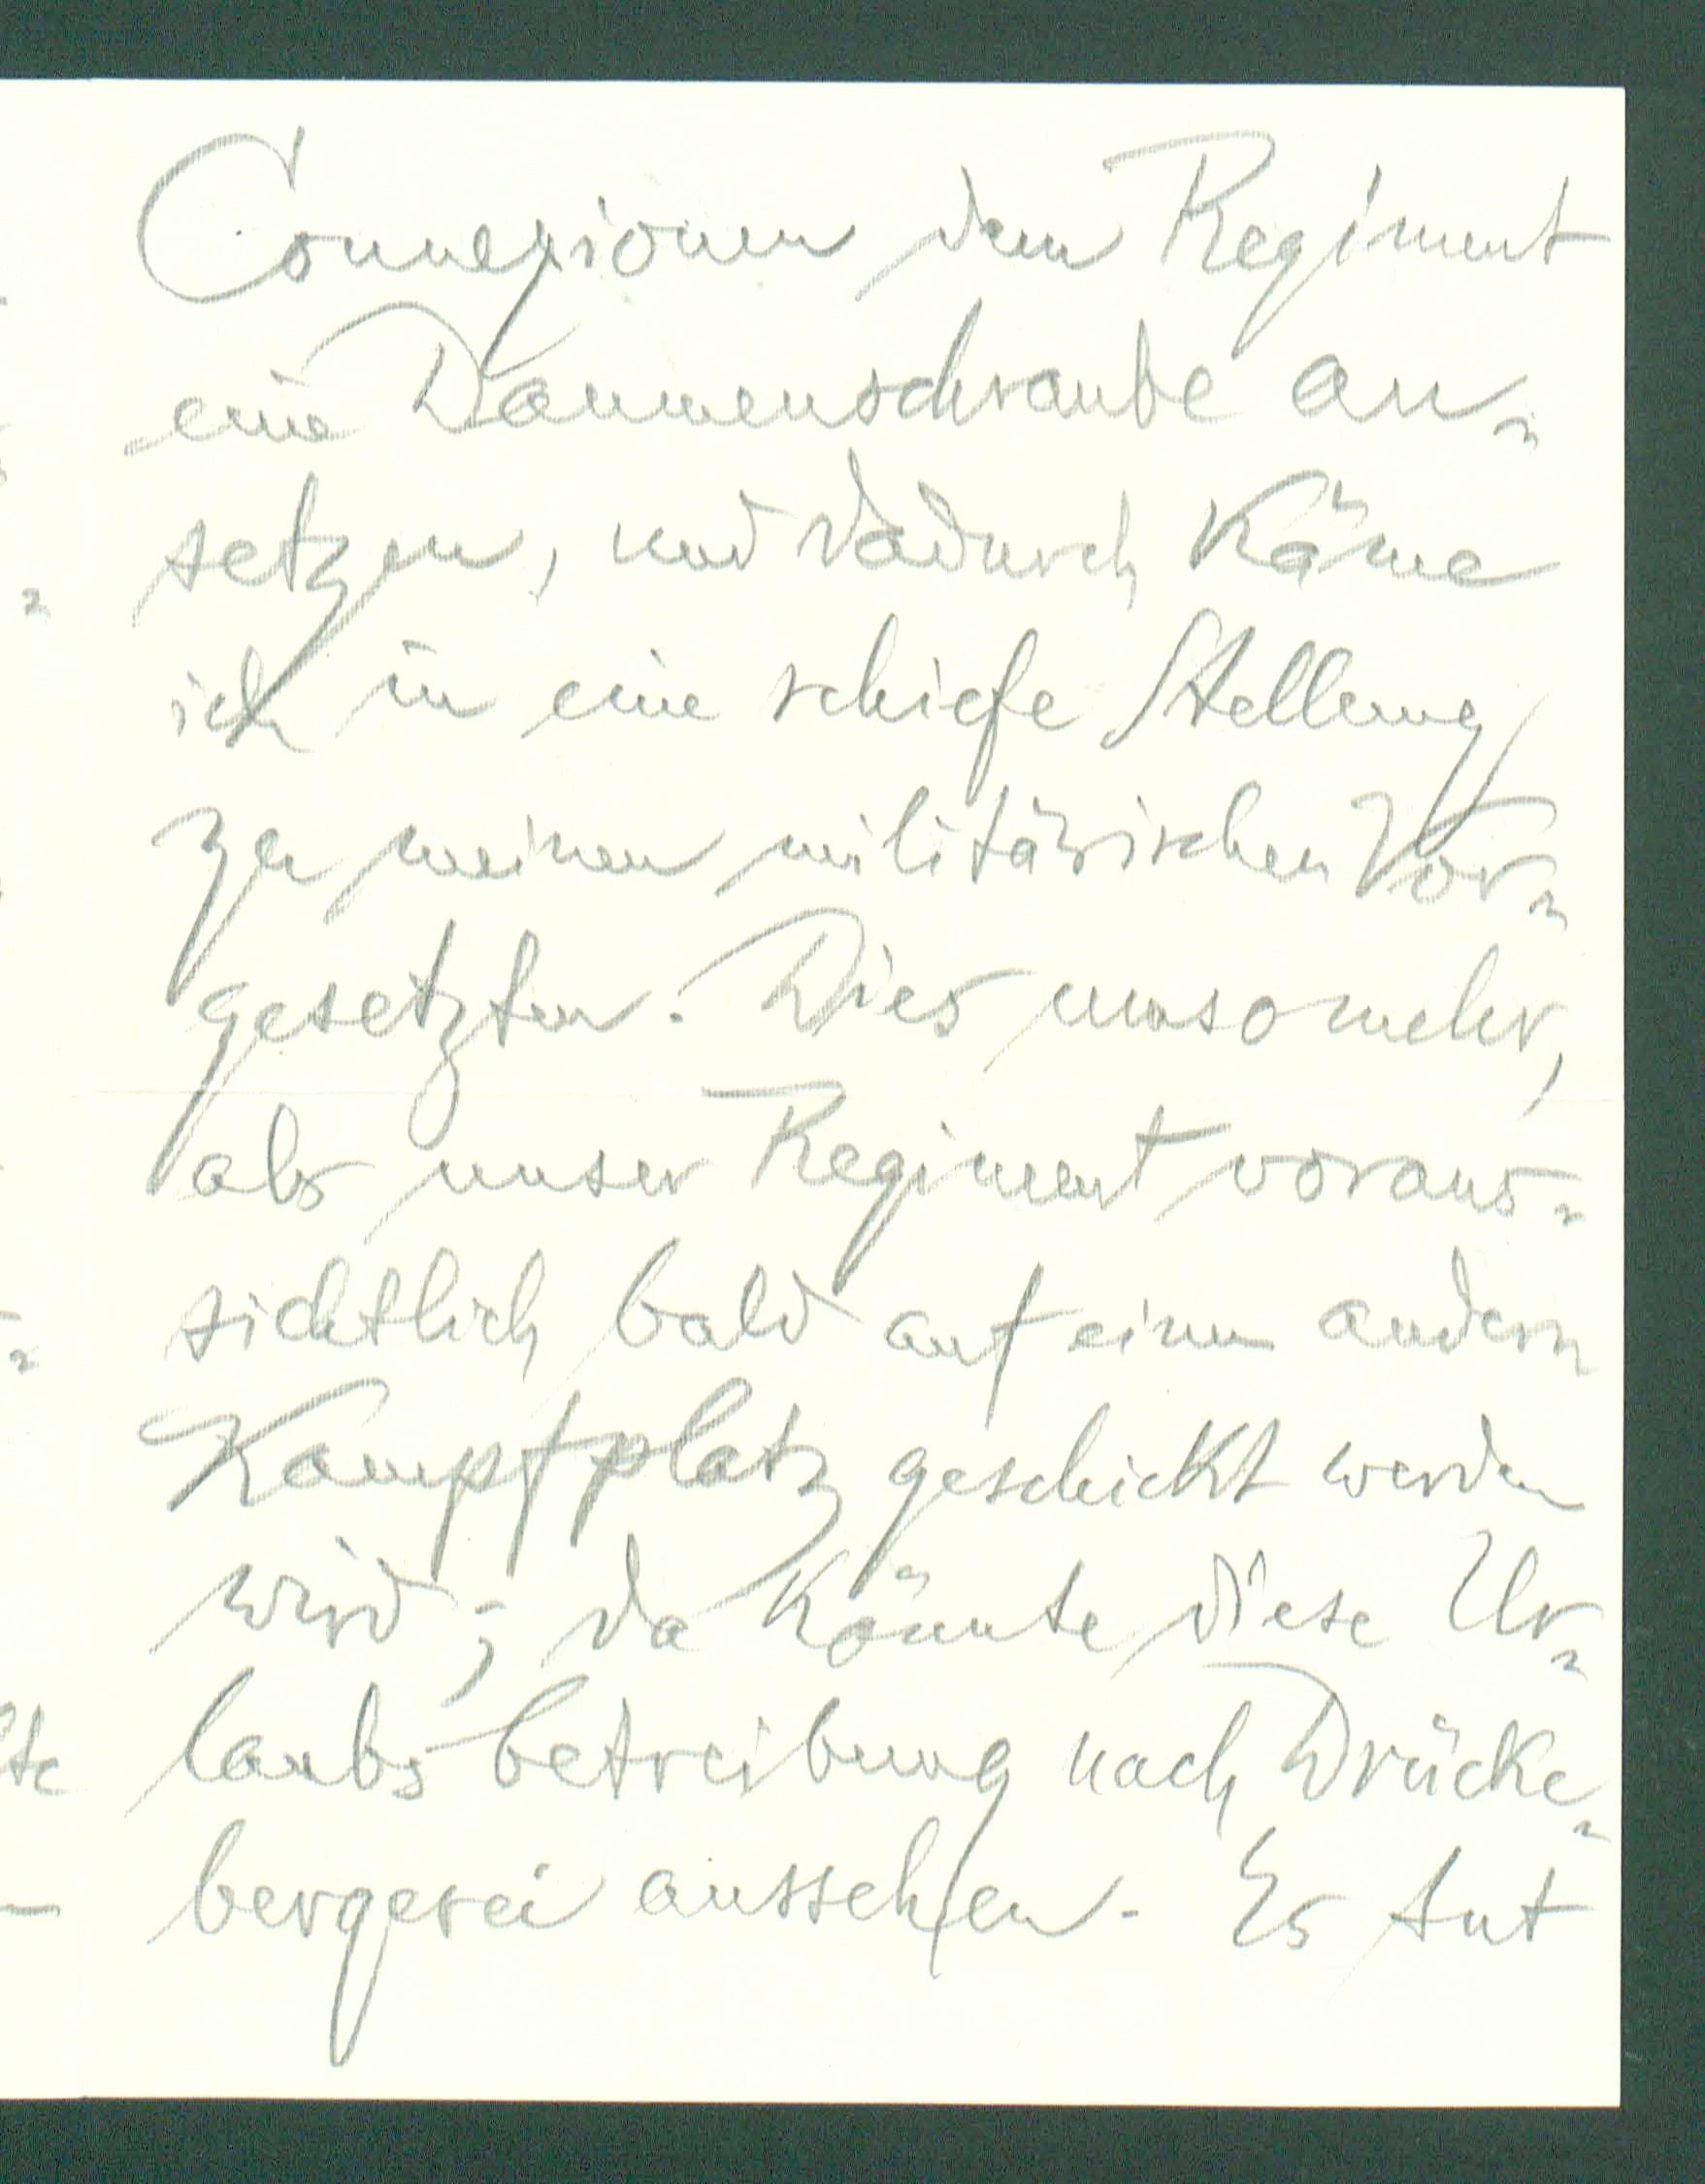 Connexionen dem Regiment
eine Daumenschraube an=
setzen, und dadurch käme
ich in eine schiefe Stellung
zu meinen militärischen Vor=
gesetzten. Dies umsomehr,
als unser Regiment voraus=
sichtlich bald auf einen andern
Kampfplatz geschickt werden
wird; da könnte diese Ur=
laubsbetreibung nach Drücke=
bergerei aussehen. Es tut